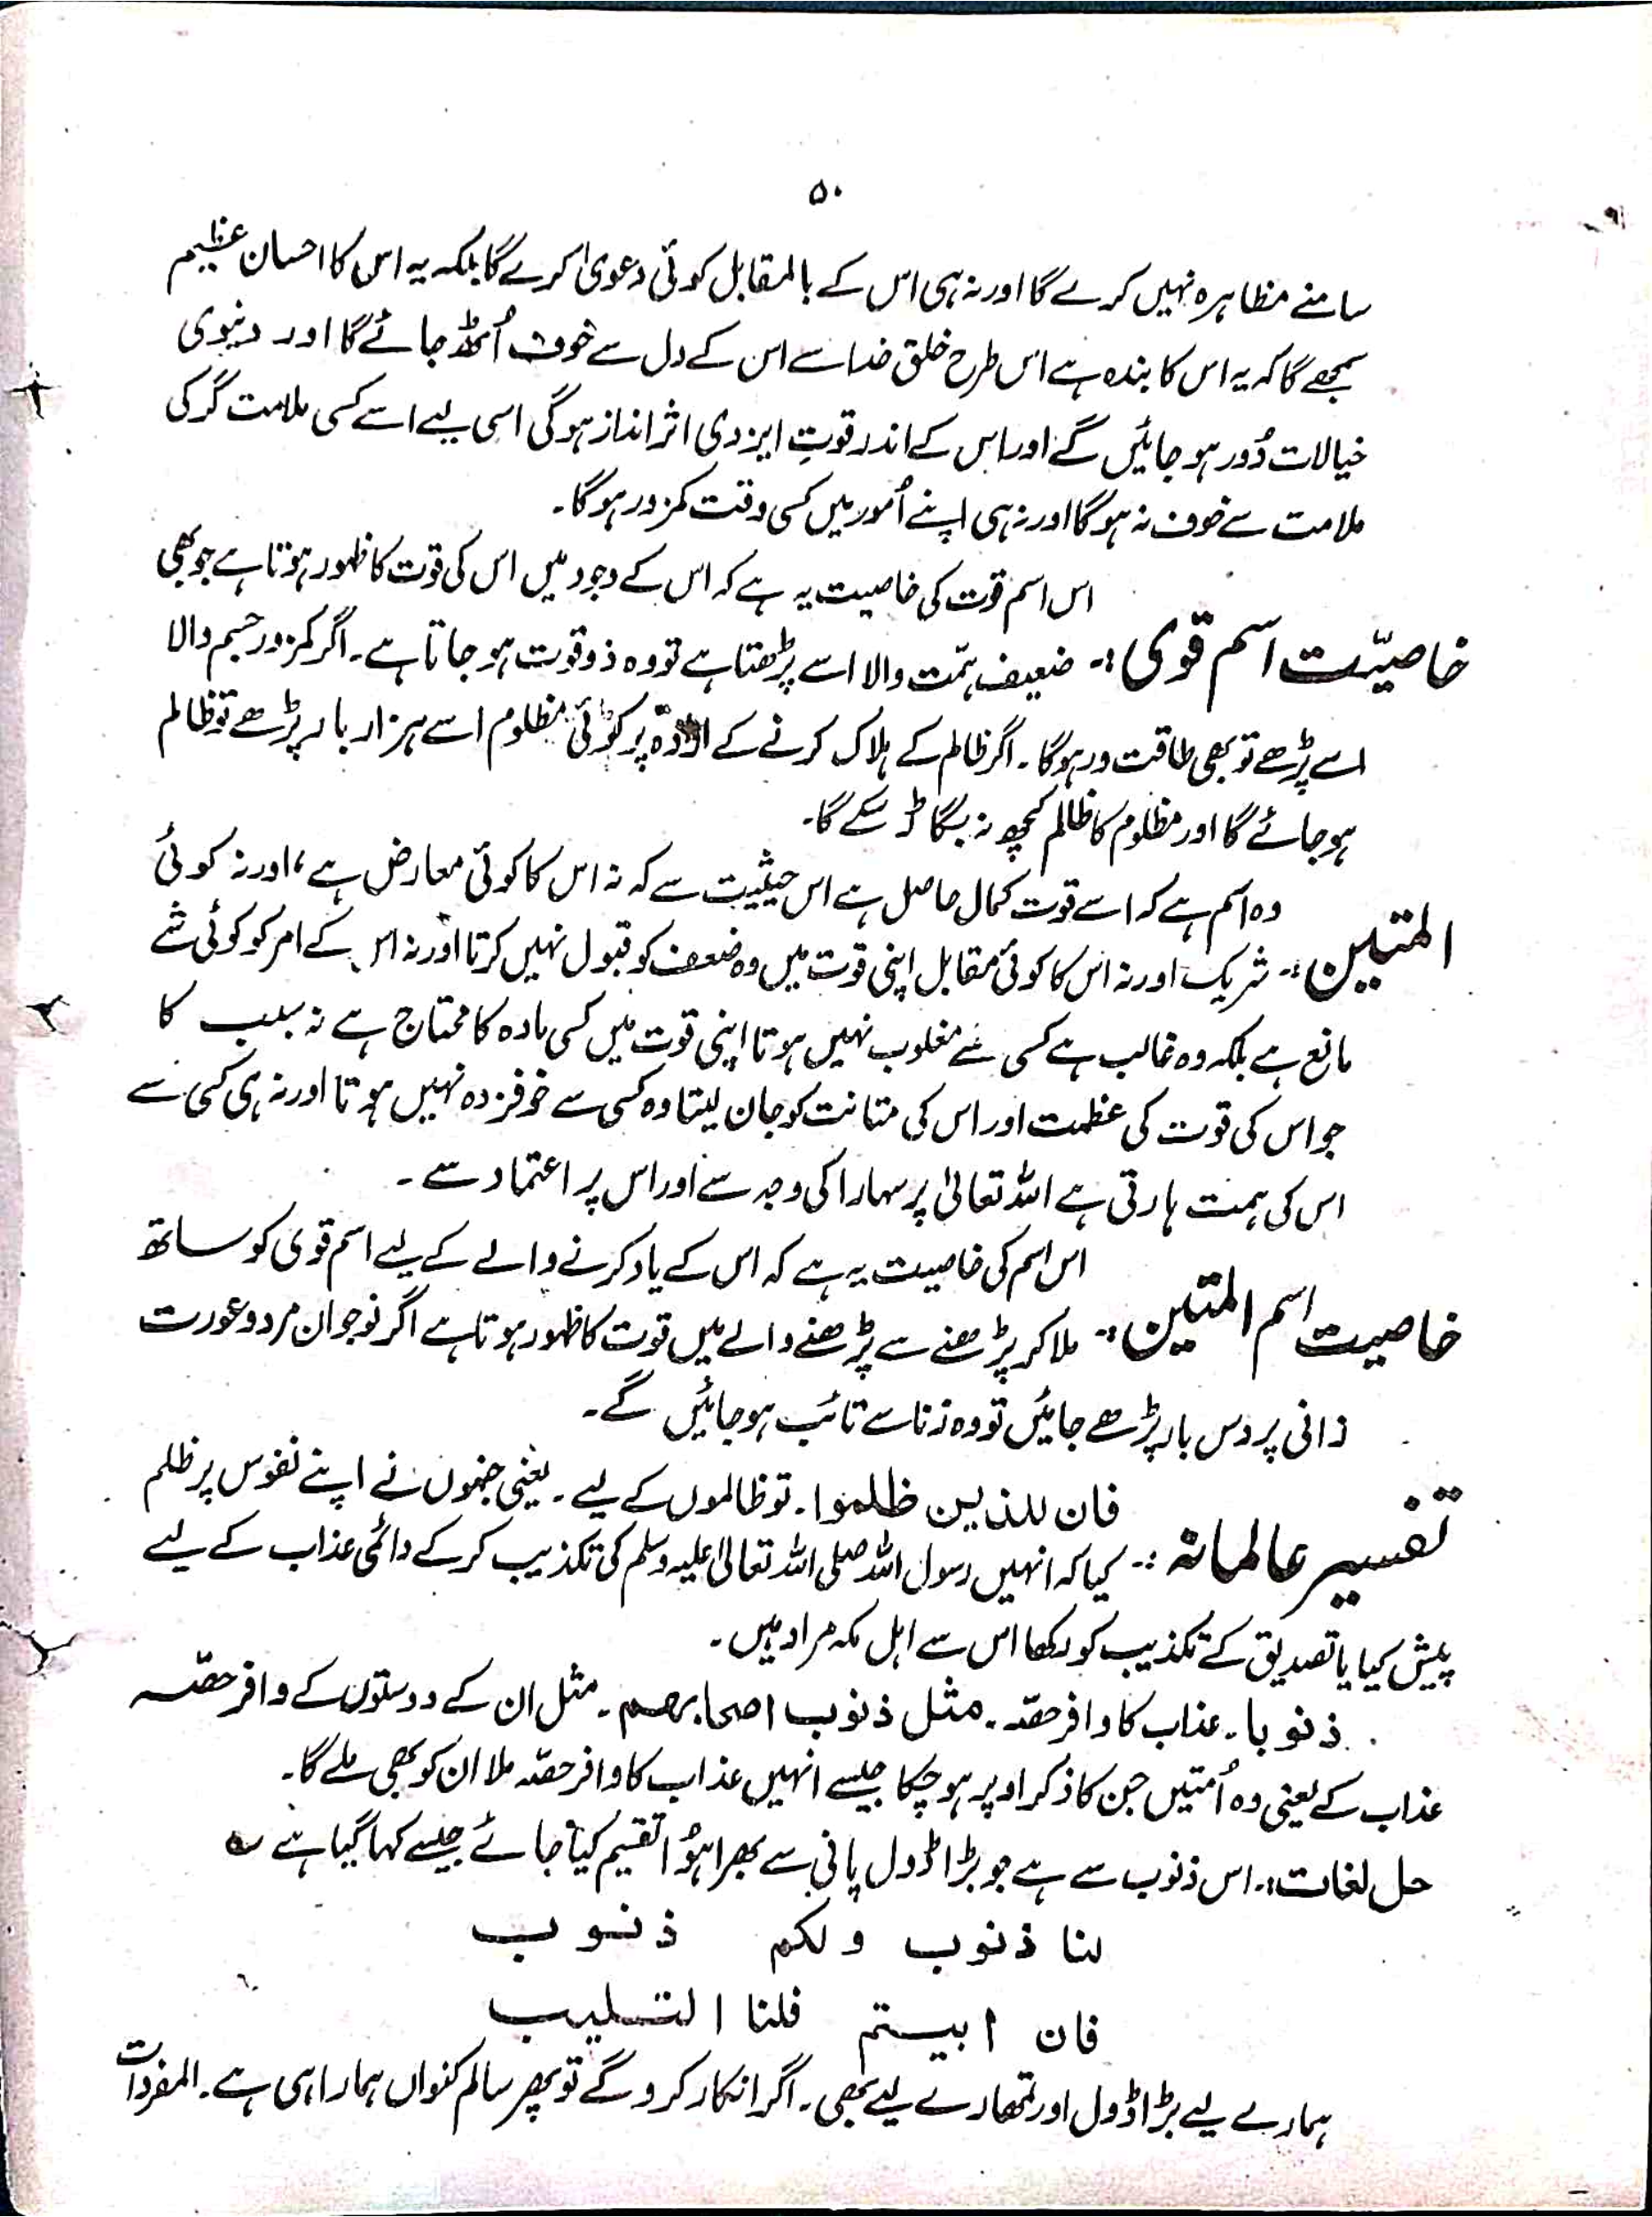 ۵۰
سامنے مظاہرہ نہیں کرے گا اور نہ ہی اس کے بالمقابل کوئی دعویٰ کرے گا بلکہ یہ اس کا احسان عظیم
سمجھے گا کہ یہ اس کا بندہ ہے اس طرح خلق خدا سے اس کے دل سے خوف اُٹھ جائے گا اور دنیوی
خیالات دُور ہو جائیں گے اور اس کے اندر قوتِ ایزدی اثر انداز ہو گی اسی لیے اسے کسی ملامت گر کی
ملامت سے خوف نہ ہو گا اور نہ ہی اپنے اُمور میں کسی وقت کمزور ہو گا۔
اس اسم قوت کی خاصیت یہ ہے کہ اس کے وجود میں اس کی قوت کا ظہور ہوتا ہے جو بھی
خاصیّت اسم قوی :۔ ضعیف ہمّت والا اسے پڑھتا ہے تو وہ ذو قوت ہو جاتا ہے۔ اگر کمزور جسم والا
اسے پڑھے تو بھی طاقت ور ہو گا۔ اگر ظالم کے ہلاک کرنے کے ارادہ پر کوئی مظلوم اسے ہزار بار پڑھے تو ظالم
ہو جائے گا اور مظلوم کا ظالم کچھ نہ بگاڑ سکے گا۔
وہ اسم ہے کہ اسے قوت کمال حاصل ہے اس حیثیت سے کہ نہ اس کا کوئی معارض ہے، اور نہ کوئی
المتین :۔ شریک اور نہ اس کا کوئی مقابل اپنی قوت میں وہ ضعف کو قبول نہیں کرتا اور نہ اس کے امر کو کوئی شے
مانع ہے بلکہ وہ غالب ہے کسی سے مغلوب نہیں ہوتا اپنی قوت میں کسی مادہ کا محتاج ہے نہ سبب کا
جو اس کی قوت کی عظمت اور اس کی متانت کو جان لیتا وہ کسی سے خوفزدہ نہیں ہوتا اور نہ ہی کسی سے
اس کی ہمت ہارتی ہے اللہ تعالیٰ پر سہارا کی وجہ سے اور اس پر اعتماد سے۔
اس اسم کی خاصیت یہ ہے کہ اس کے یاد کرنے والے کے لیے اسم قوی کو ساتھ
خاصیت اسم المتین :۔ ملا کر پڑھنے سے پڑھنے والے میں قوت کا ظہور ہوتا ہے اگر نوجوان مرد و عورت
زانی پر دس بار پڑھے جائیں تو وہ زنا سے تائب ہو جائیں گے۔
فان للذین ظلموا۔ تو ظالموں کے لیے۔ یعنی جنہوں نے اپنے نفوس پر ظلم
تفسیر عالمانہ :۔ کیا کہ انہیں رسول اللہ صلی اللہ تعالیٰ علیہ وسلم کی تکذیب کر کے دائمی عذاب کے لیے
پیش کیا یا تصدیق کے تکذیب کو رکھا اس سے اہل مکہ مراد ہیں۔
ذنوبا۔ عذاب کا وافر حصّہ۔ مثل ذنوب اصحابھم۔ مثل ان کے دوستوں کے وافر حصّہ
عذاب کے یعنی وہ اُمتیں جن کا ذکر اوپر ہو چکا جیسے انہیں عذاب کا وافر حصّہ ملا ان کو بھی ملے گا۔
حل لغات :۔ اس ذنوب سے ہے جو بڑا ڈول پانی سے بھرا ہوُا تقسیم کیا جائے جیسے کہا گیا ہے ؎
لنا ذنوب ولکم ذنوب
فان ابیتم فلنا القلیب
ہمارے لیے بڑا ڈول اور تمھارے لیے بھی۔ اگر انکار کرو گے تو پھر سالم کنواں ہمارا ہی ہے۔ المفردات